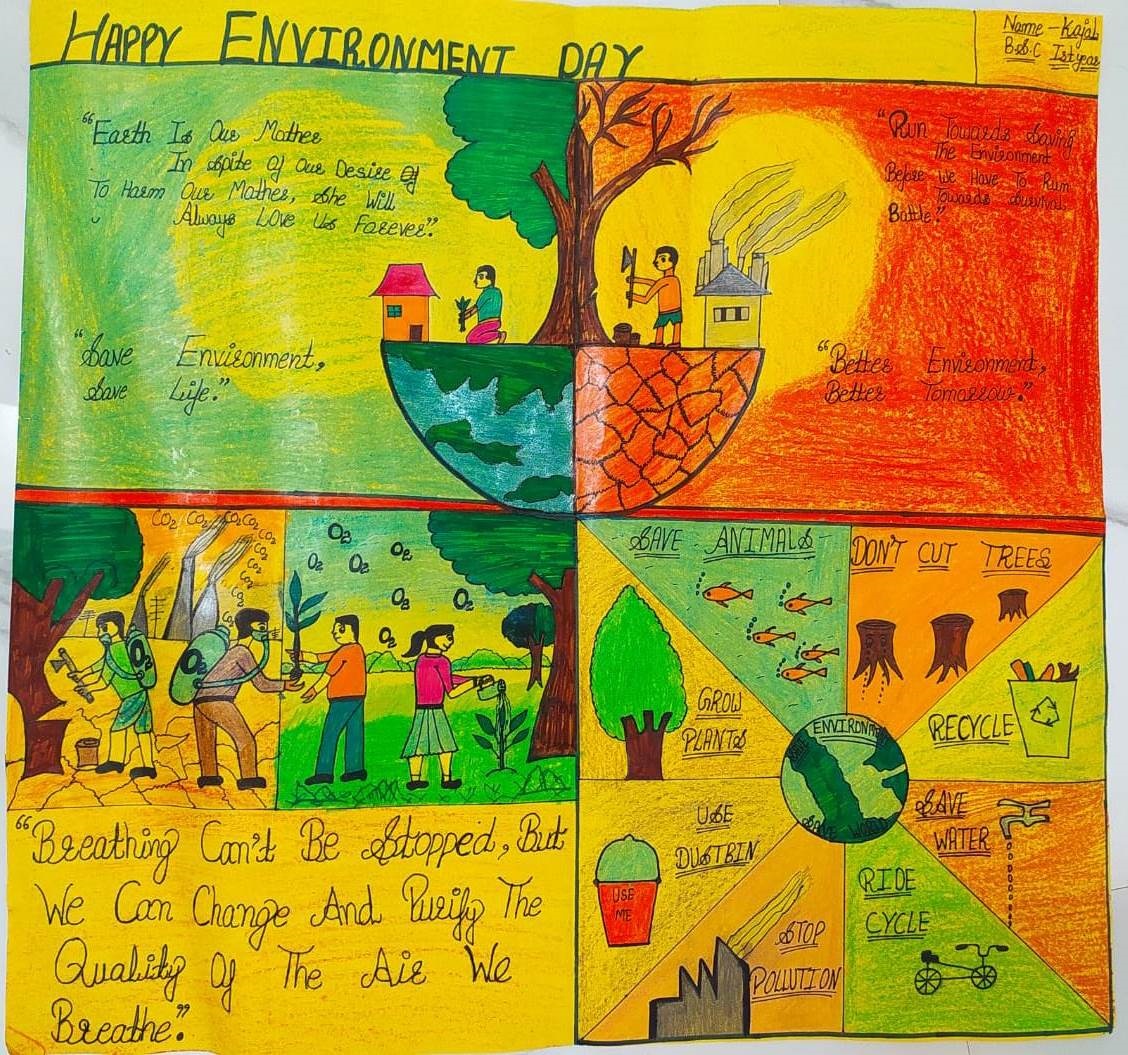 HAPPY ENVIRONMENT DAY
Name - Kajal
B.S.C Ist year
"Earth Is Our Mother
In Spite Of Our Desire Of
To Harm Our Mother, She Will
Always Love Us Forever".
"Run Towards Saving
The Environment
Before We Have To Run
Towards Survival
Battle."
"Save Environment,
Save Life."
"Better Environment,
Better Tomorrow."
CO2 CO2 CO2 CO2
CO2
CO2
CO2
CO2
CO2
CO2
O2
O2
O2
O2 O2 O2
O2 O2
O2
"Breathing Can't Be Stopped, But
We Can Change And Purify The
Quality Of The Air We
Breathe".
SAVE ANIMALS
DON'T CUT TREES
GROW
PLANTS
RECYCLE
ENVIRONM
SAVE WORLD
USE
DUSTBIN
USE
ME
SAVE
WATER
RIDE
CYCLE
STOP
POLLUTION